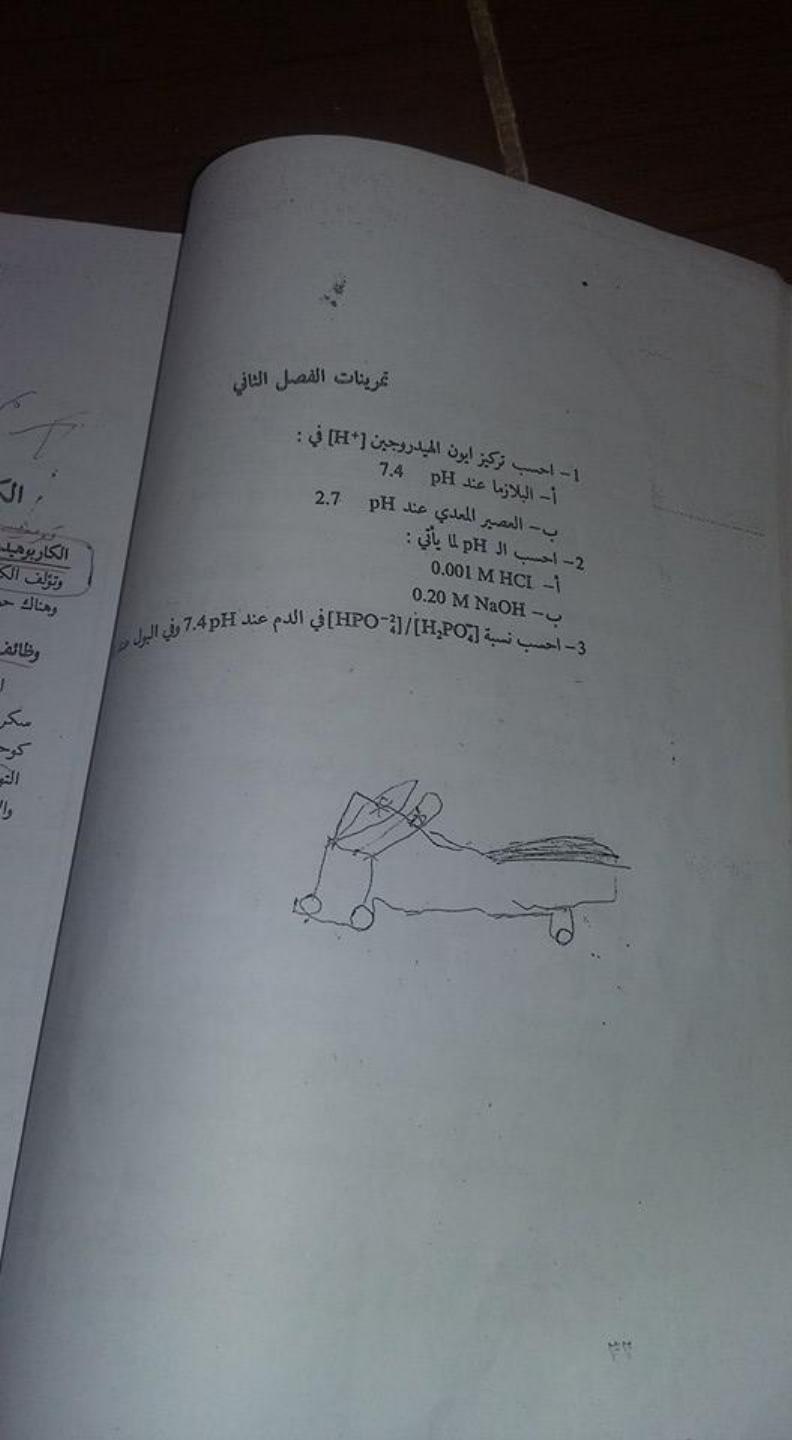 تمرينات الفصل الثاني
1- احسب تركيز ايون الهيدروجين [H⁺] في :
أ- البلازما عند pH 7.4
ب- العصير المعدي عند pH 2.7
2- احسب الـ pH لما يأتي :
أ- 0.001 M HCl
ب- 0.20 M NaOH
3- احسب نسبة [HPO₄⁻²]/[H₂PO₄⁻] في الدم عند 7.4 pH وفي البول
٣٢
الكاربوهيد
وتؤلف الك
وهناك
وظائف
سكر